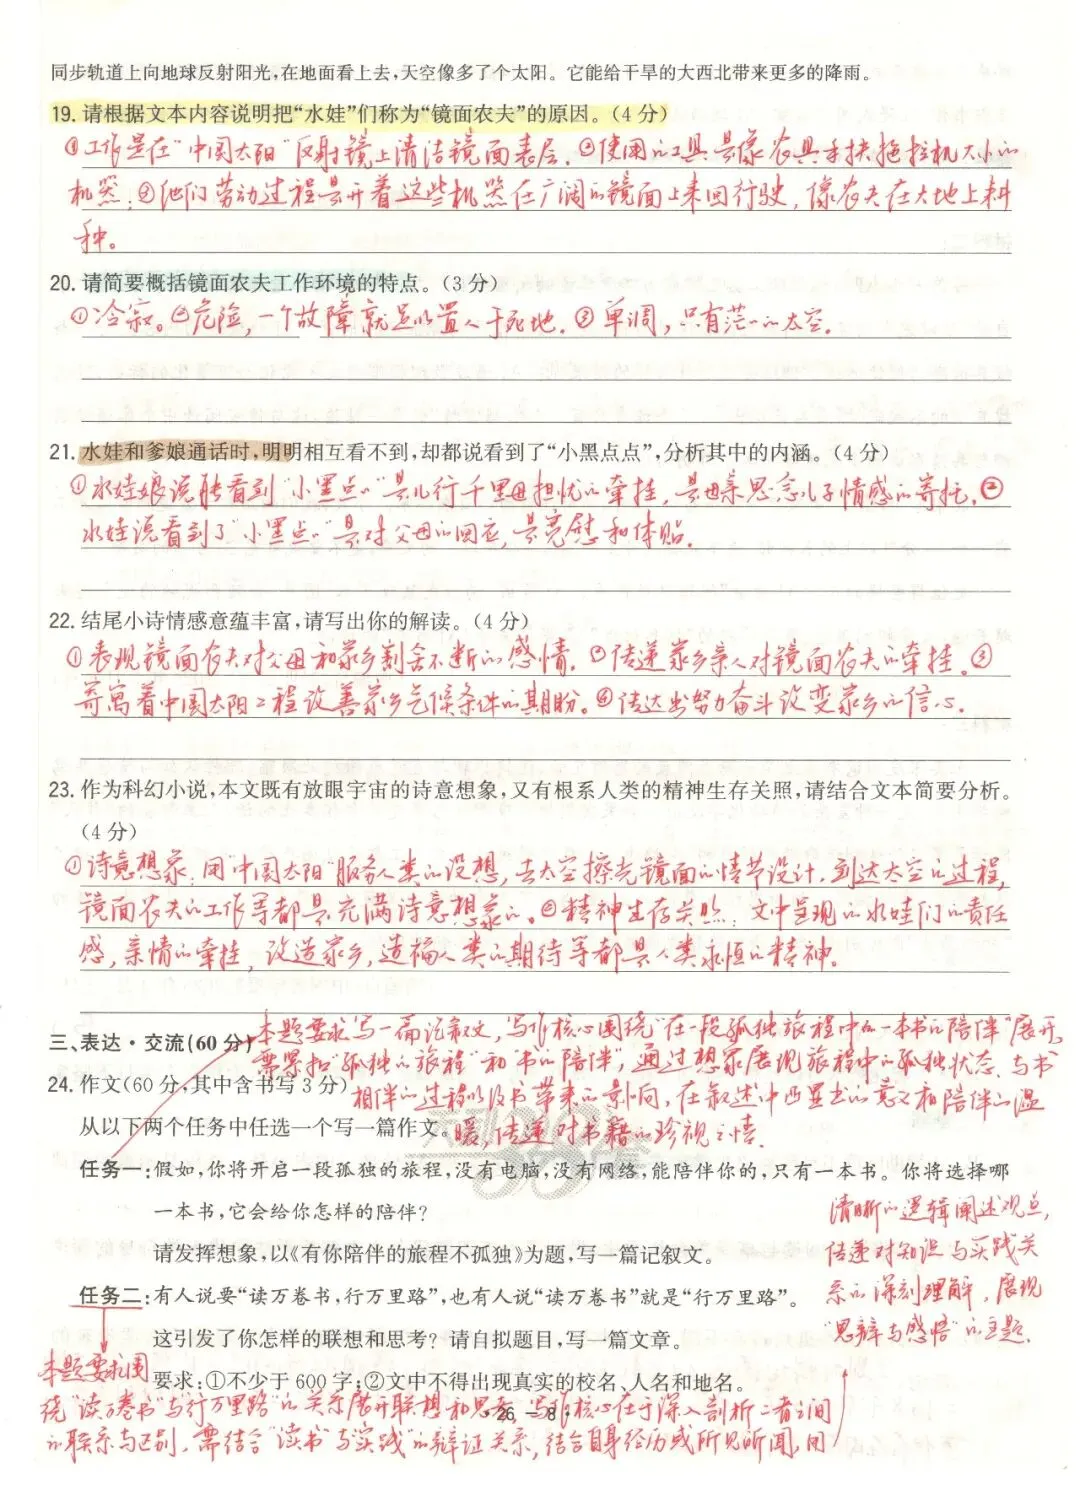 同步轨道上向地球反射阳光,在地面看上去,天空像多了个太阳。它能给干旱的大西北带来更多的降雨。
19. 请根据文本内容说明把“水娃”们称为“镜面农夫”的原因。(4 分)
①工作是在“中国太阳”反射镜上清洁镜面表层。②使用的工具是像农具手扶拖拉机大小的
机器;③他们劳动过程是开着这些机器在广阔的镜面上来回行驶,像农夫在大地上耕
种。
20. 请简要概括镜面农夫工作环境的特点。(3 分)
①冷寂。②危险,一个故障就足以置人于死地。③单调,只有茫茫的太空.
21. 水娃和爹娘通话时,明明相互看不到,却都说看到了“小黑点点”,分析其中的内涵。(4 分)
①水娃娘说能看到“小黑点点”是儿行千里母担忧的牵挂,是母亲思念儿子情感的寄托.②
水娃说看到了“小黑点点”是对父母的回应,是宽慰和体贴.
22. 结尾小诗情感意蕴丰富,请写出你的解读。(4 分)
①表现镜面农夫对父母和家乡割舍不断的感情.②传递家乡亲人对镜面农夫的牵挂.③
寄寓着中国太阳工程改善家乡气候条件的期盼。④传达出努力奋斗改变家乡的信心.
23. 作为科幻小说,本文既有放眼宇宙的诗意想象,又有根系人类的精神生存关照,请结合文本简要分析。
(4 分)
①诗意想象:用“中国太阳”服务人类的设想,去太空擦亮镜面的情节设计.到达太空的过程,
镜面农夫的工作等都是充满诗意想象的.②精神生存关照:文中呈现的水娃们的责任
感,亲情的牵挂,改造家乡,造福人类的期待等都是人类永恒的精神。
本题要求写一篇记叙文,写作核心围绕“在一段孤独旅程中的一本书的陪伴”展开,
三、表达·交流(60 分)
需紧扣“孤独的旅程”和“书的陪伴”,通过想象展现旅程中的孤独状态、与书
24. 作文(60 分,其中含书写 3 分)
相伴的过程以及书带来的影响,在叙述中凸显书的意义和陪伴的温
从以下两个任务中任选一个写一篇作文。
暖,传递对书籍的珍视之情.
任务一:假如,你将开启一段孤独的旅程,没有电脑,没有网络,能陪伴你的,只有一本书。你将选择哪
一本书,它会给你怎样的陪伴?
请发挥想象,以《有你陪伴的旅程不孤独》为题,写一篇记叙文。
任务二:有人说要“读万卷书,行万里路”,也有人说“读万卷书”就是“行万里路”。
这引发了你怎样的联想和思考?请自拟题目,写一篇文章。
要求:①不少于 600 字;②文中不得出现真实的校名、人名和地名。
本题要求围
绕“读万卷书”与“行万里路”的关系展开联想和思考.写作核心在于深入剖析二者之间
的联系与区别,需结合“读书与实践”的辩证关系,结合自身经历或所见所闻,用
清晰的逻辑阐述观点,
传递对知识与实践关
系的深刻理解,展现
“思辨与感悟”的主题.
·26 - 8·